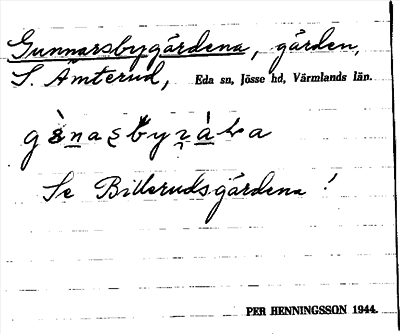 Gunnarsbygårdena, gården,
S. Ämterud, Eda sn, Jösse hd, Värmlands län.
Se Billerudsgårdena!
PER HENNINGSSON 1944.